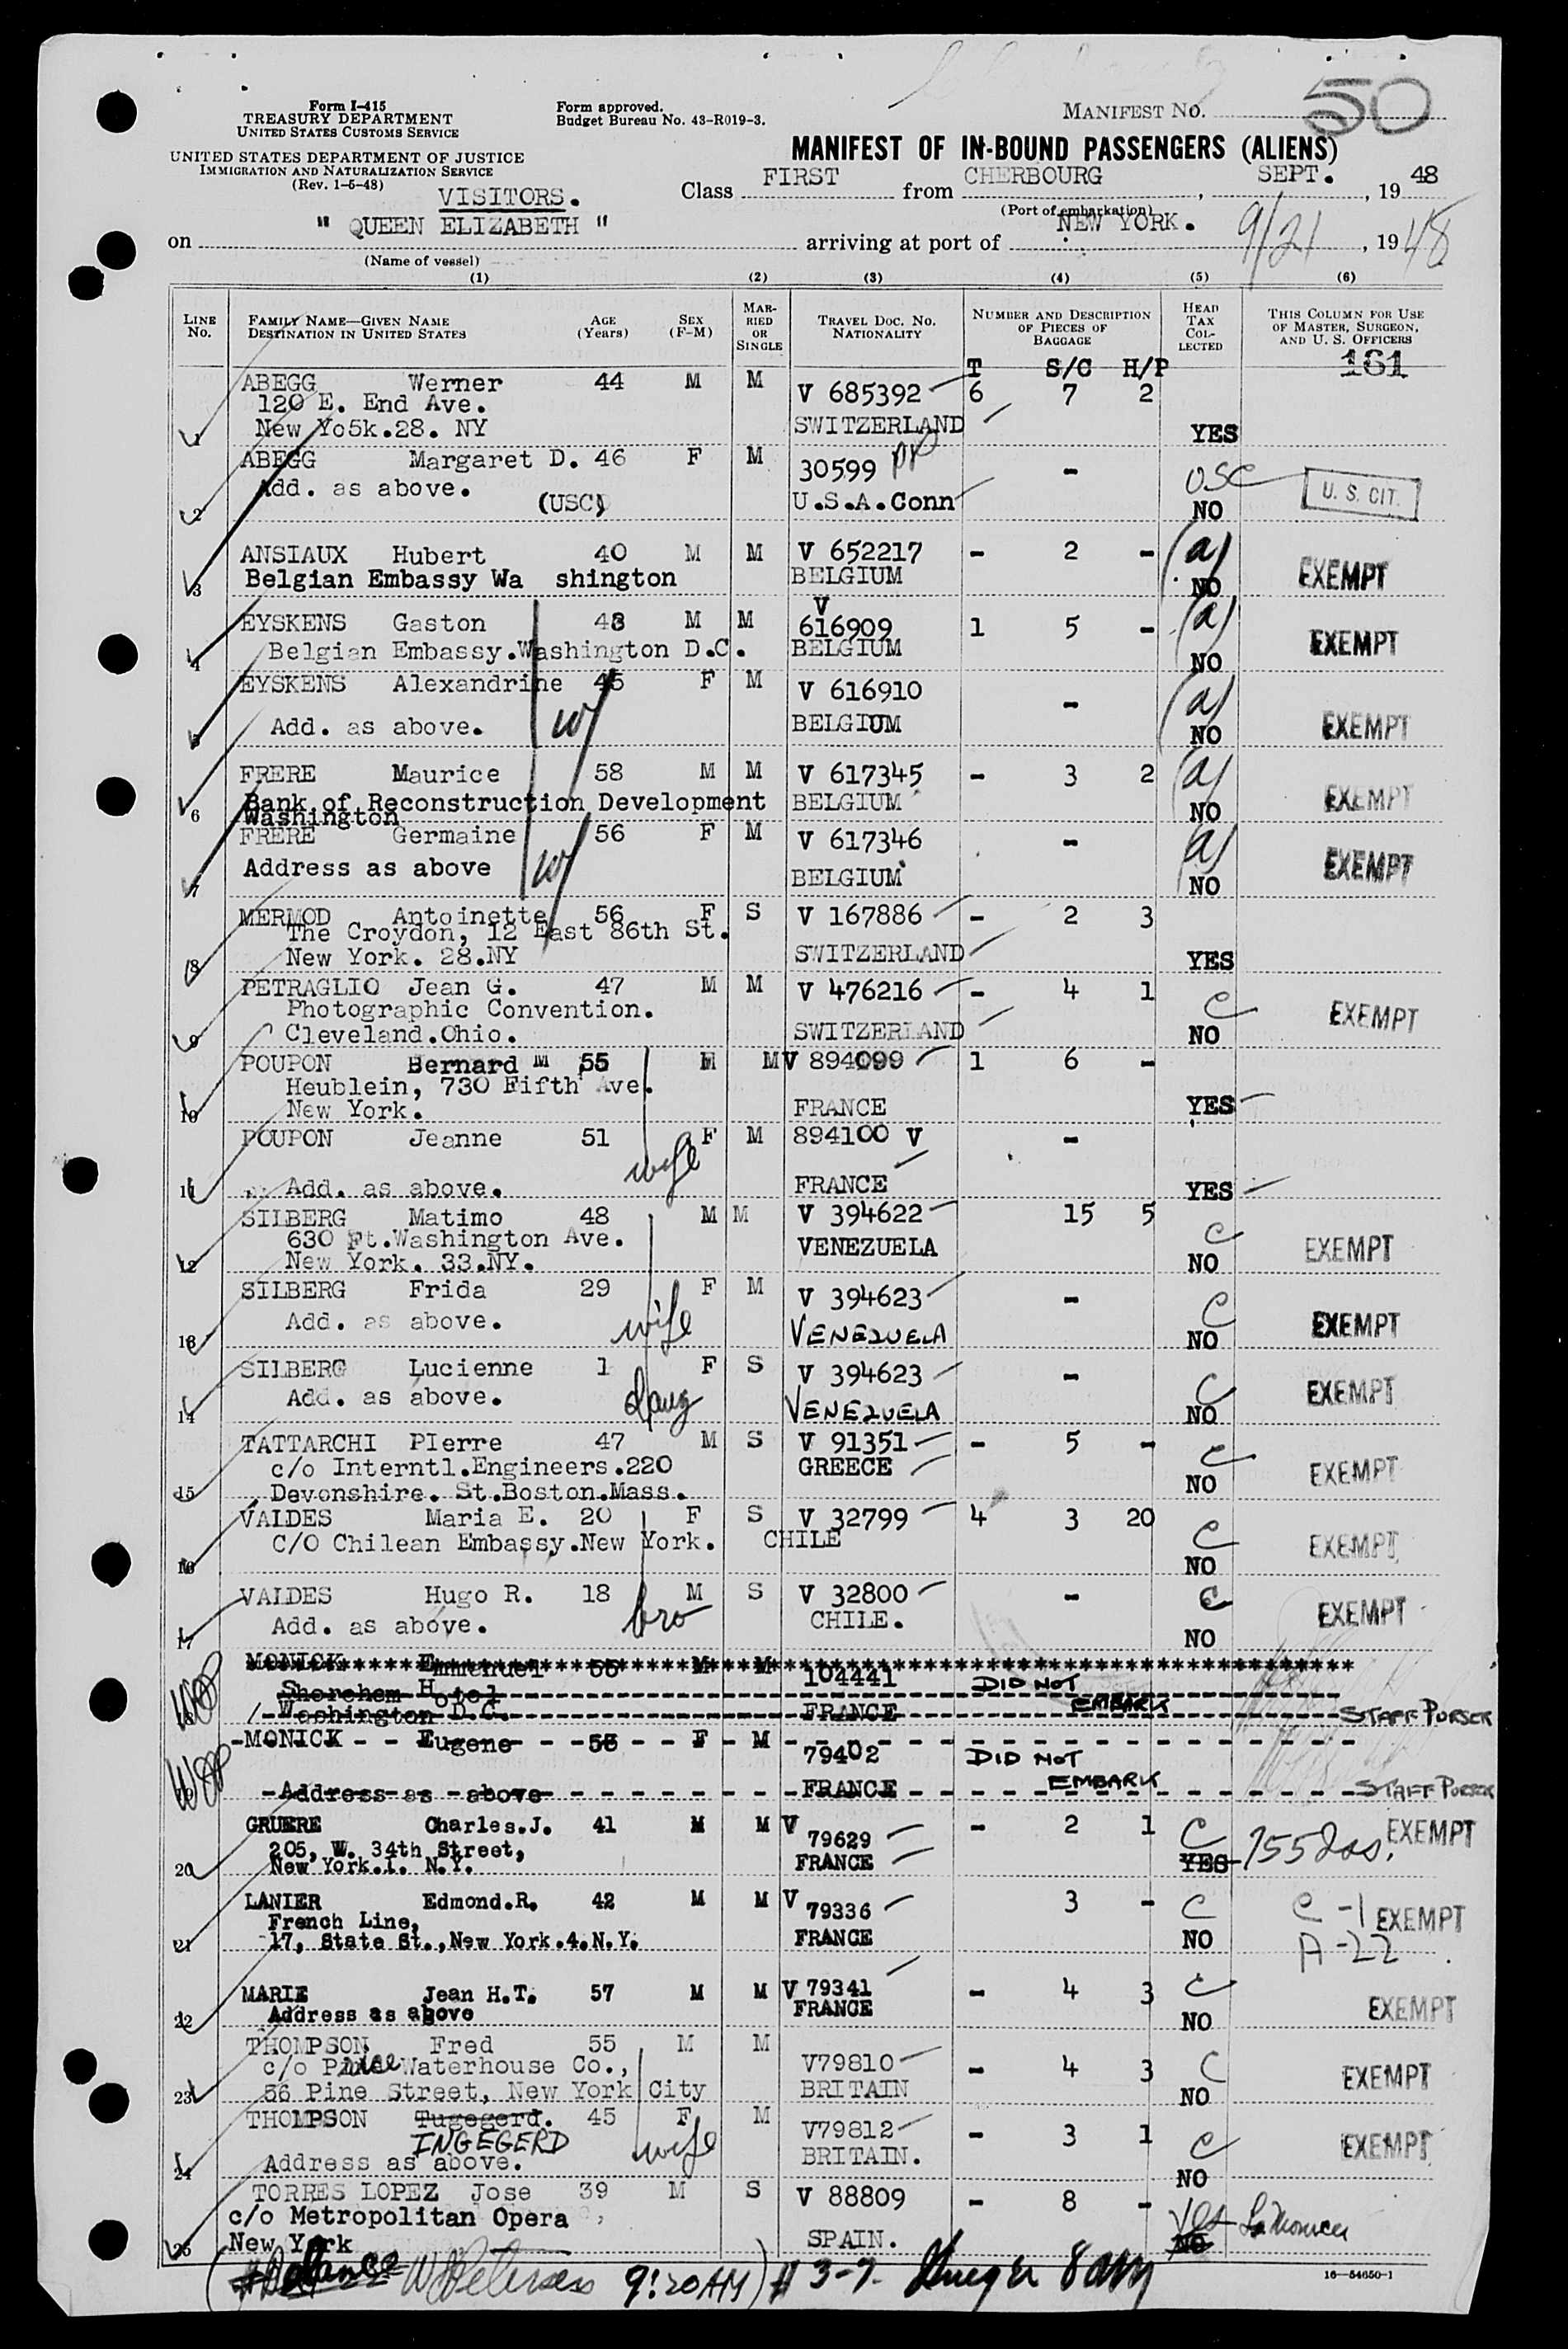 50
Form I-415
TREASURY DEPARTMENT
UNITED STATES CUSTOMS SERVICE
Form approved.
Budget Bureau No. 43-R019-3.
MANIFEST No.
UNITED STATES DEPARTMENT OF JUSTICE
IMMIGRATION AND NATURALIZATION SERVICE
(Rev. 1-5-48)
MANIFEST OF IN-BOUND PASSENGERS (ALIENS)
VISITORS.
Class FIRST from CHERBOURG, SEPT., 19 48
(Port of embarkation)
on " QUEEN ELIZABETH " arriving at port of NEW YORK. 9/21, 19 48
(Name of vessel)
(1) (2) (3) (4) (5) (6)
LINE No. FAMILY NAME—GIVEN NAME DESTINATION IN UNITED STATES AGE (Years) SEX (F-M) MARRIED OR SINGLE TRAVEL DOC. NO. NATIONALITY NUMBER AND DESCRIPTION OF PIECES OF BAGGAGE HEAD TAX COLLECTED THIS COLUMN FOR USE OF MASTER, SURGEON, AND U. S. OFFICERS
T S/C H/P 161
ABEGG Werner 44 M M V 685392 6 7 2
120 E. End Ave.
1 New Yo5k.28. NY SWITZERLAND YES
ABEGG Margaret D. 46 F M 30599 PP - USC
Add. as above. U. S. CIT.
2 (USC) U.S.A.Conn NO
ANSIAUX Hubert 40 M M V 652217 - 2 - (a)
3 Belgian Embassy Wa shington BELGIUM NO EXEMPT
EYSKENS Gaston 43 M M V 616909 1 5 - (a)
4 Belgian Embassy.Washington D.C. BELGIUM NO EXEMPT
EYSKENS Alexandrine 45 F M V 616910 - (a)
5 Add. as above. w BELGIUM NO EXEMPT
FRERE Maurice 58 M M V 617345 - 3 2 (a)
6 Bank of Reconstruction Development BELGIUM NO EXEMPT
Washington
FRERE Germaine 56 F M V 617346 - (a)
7 Address as above w BELGIUM NO EXEMPT
MERMOD Antoinette 56 F S V 167886 - 2 3
The Croydon, 12 East 86th St.
8 New York. 28.NY SWITZERLAND YES
PETRAGLIO Jean G. 47 M M V 476216 - 4 1 C
Photographic Convention. EXEMPT
9 Cleveland.Ohio. SWITZERLAND NO
POUPON Bernard M 55 M M V 894099 1 6 -
Heublein, 730 Fifth Ave.
10 New York. FRANCE YES
POUPON Jeanne 51 F M 894100 V -
wife
11 Add. as above. FRANCE YES
SILBERG Matimo 48 M M V 394622 15 5 C
630 Ft.Washington Ave. VENEZUELA EXEMPT
12 New York. 33.NY. NO
SILBERG Frida 29 F M V 394623 - C
13 Add. as above. wife VENEZUELA NO EXEMPT
SILBERG Lucienne 1 F S V 394623 - C
14 Add. as above. Daug VENEZUELA NO EXEMPT
TATTARCHI PIerre 47 M S V 91351 - 5 - C
c/o Interntl.Engineers.220 GREECE EXEMPT
15 Devonshire. St.Boston.Mass. NO
VALDES Maria E. 20 F S V 32799 4 3 20 C
16 C/O Chilean Embassy.New York. CHILE NO EXEMPT
VALDES Hugo R. 18 M S V 32800 - C
17 Add. as above. bro CHILE. NO EXEMPT
MONICK Emmanuel 55 M M 104441 DID NOT
Shorehem Hotel EMBARK
Washington D.C. FRANCE STAFF PURSER
MONICK Eugene 53 F M 79402 DID NOT
EMBARK
Address as above FRANCE STAFF PURSER
GRUERE Charles.J. 41 M M V 79629 - 2 1 C EXEMPT
205, W. 34th Street,
20 New York.1. N.Y. FRANCE YES
LANIER Edmond.R. 42 M M V 79336 3 - C C-1 EXEMPT
French Line,
21 17, State St.,New York.4.N.Y. FRANCE NO A-22
MARIE Jean H.T. 57 M M V 79341 - 4 3 C
22 Address as above FRANCE NO EXEMPT
THOMPSON Fred 55 M M V79810 - 4 3 C
c/o Price Waterhouse Co., EXEMPT
23 56 Pine Street, New York City BRITAIN NO
THOMPSON Tugegerd. 45 F M V79812 - 3 1 C
INGEGERD wife EXEMPT
24 Address as above. BRITAIN. NO
TORRES LOPEZ Jose 39 M S V 88809 - 8 -
c/o Metropolitan Opera yes
25 New York SPAIN. NO
9:20AM) # 3-7.
16—54650-1